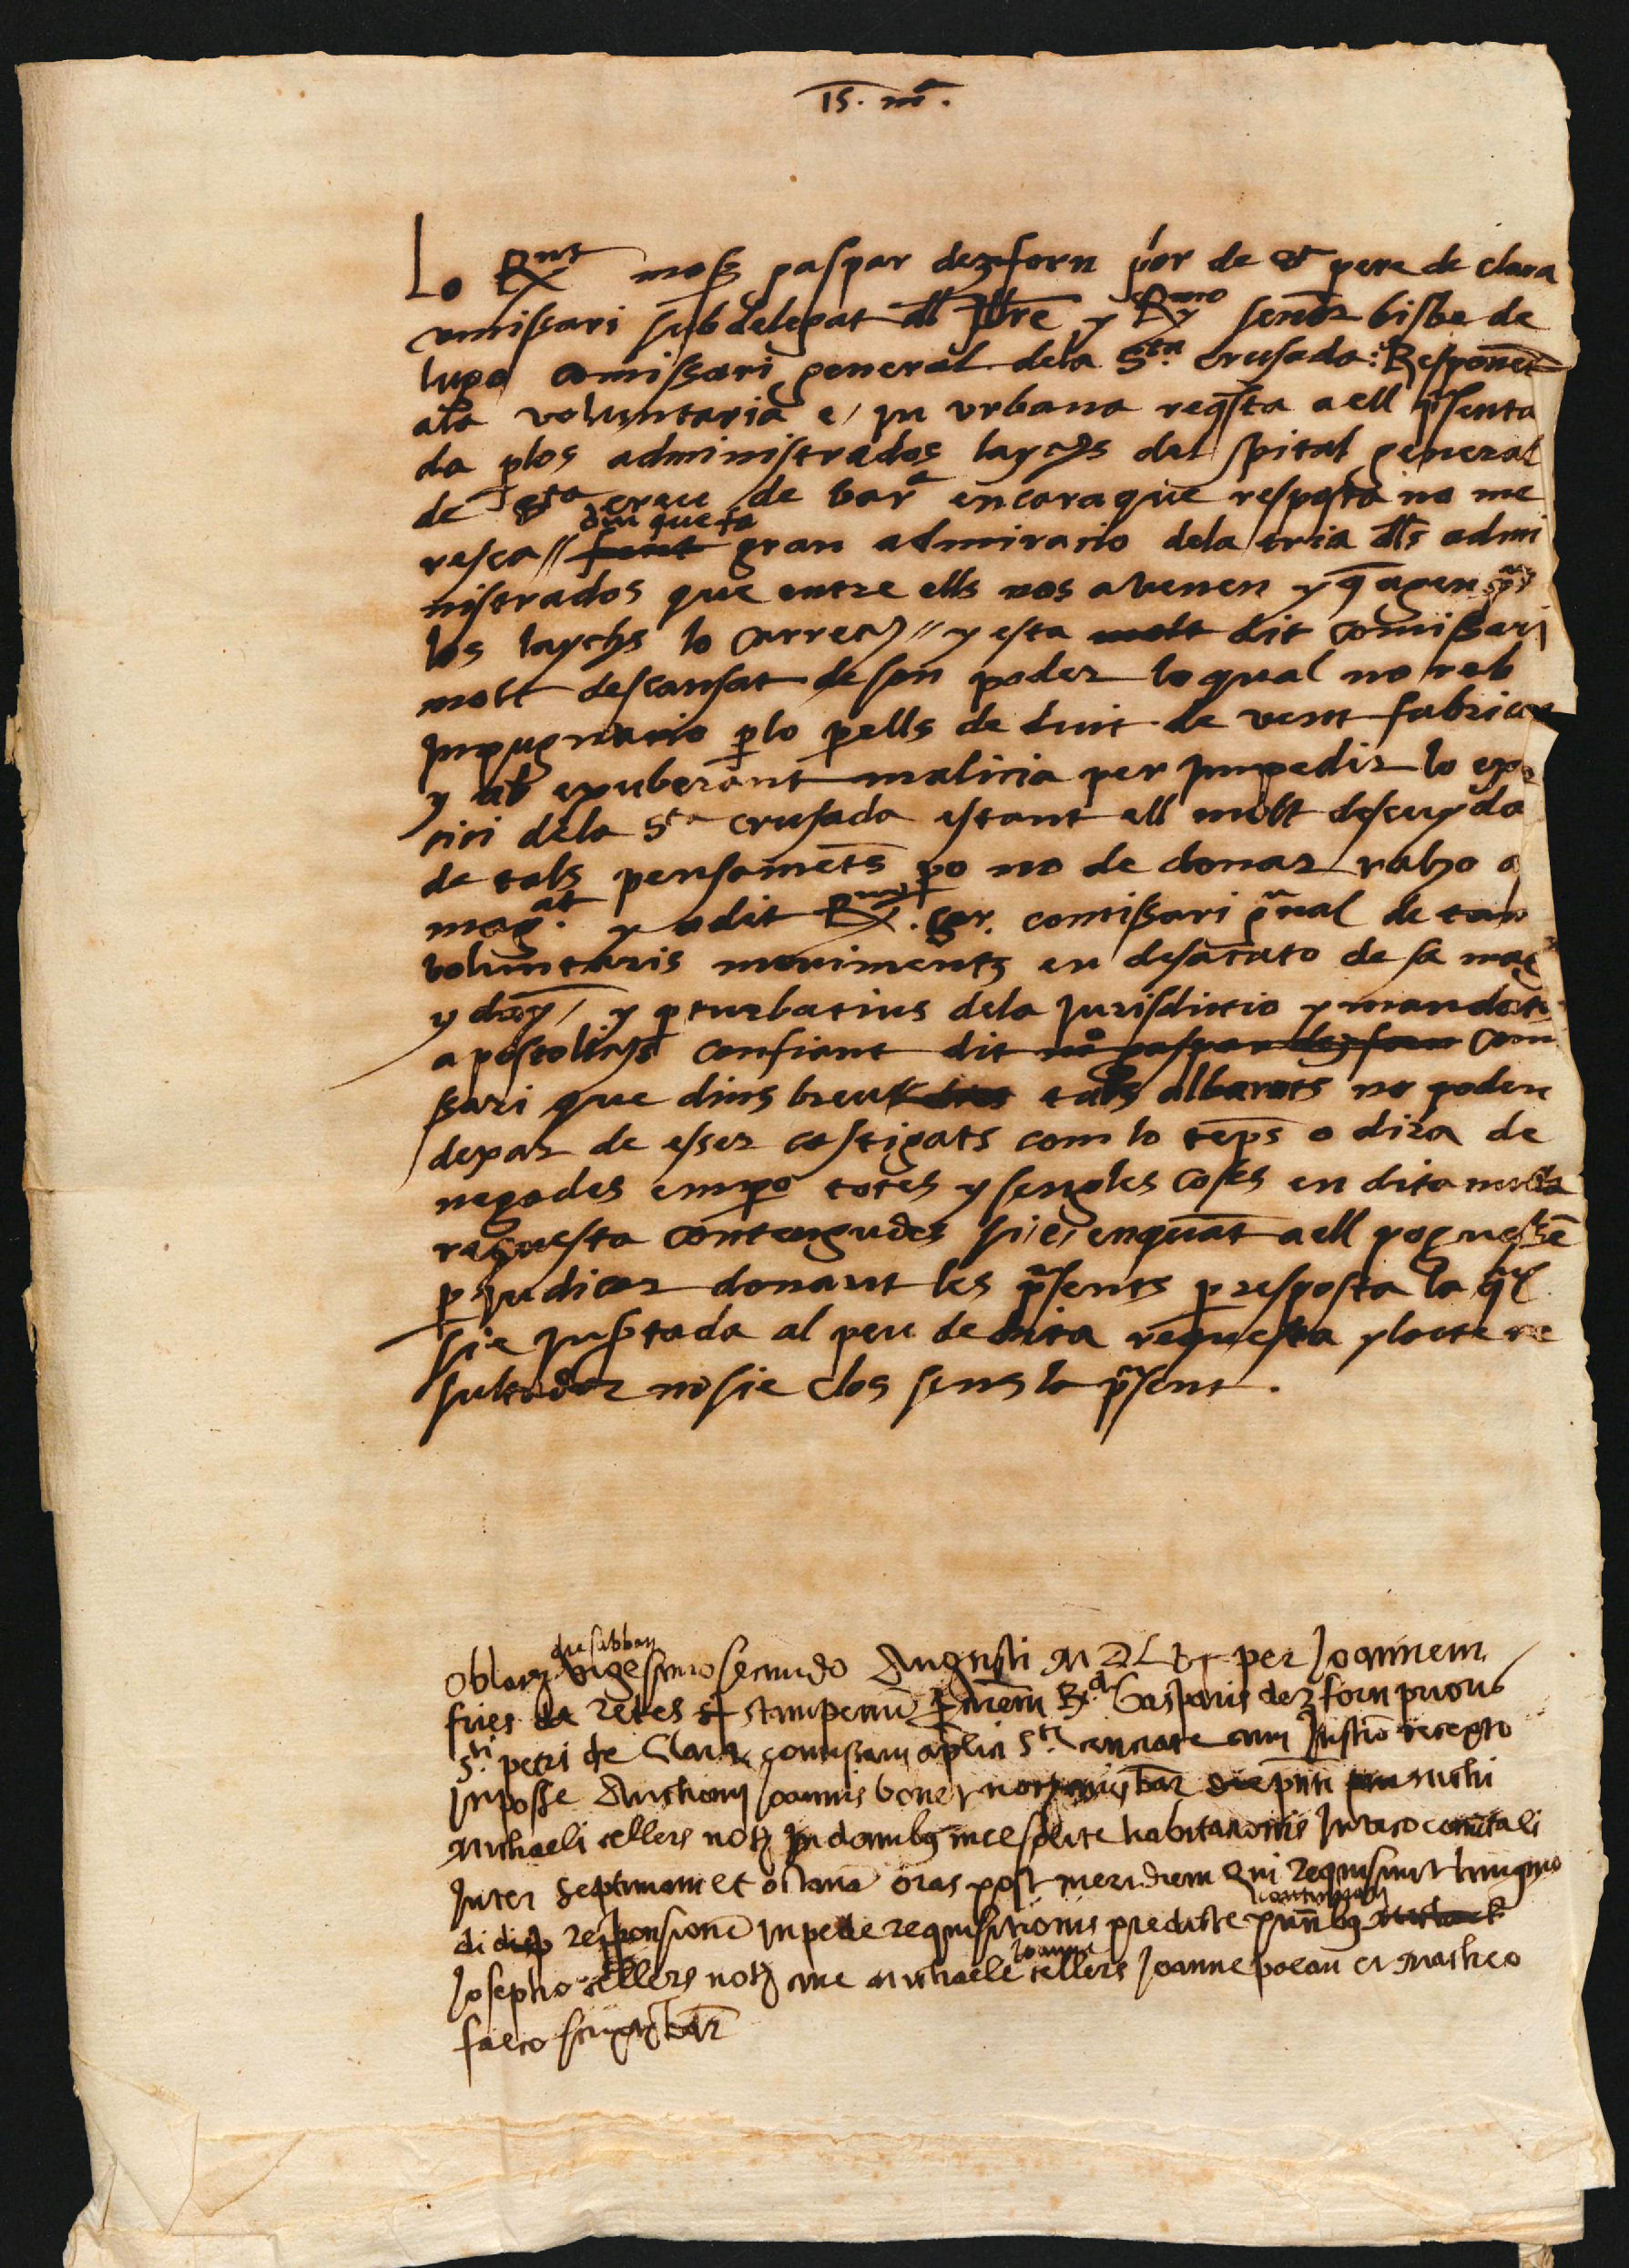 Lo Rnt moss gaspar dezforn pior de st pere de clara
comissari subdelegat dl Jllre y Rmo senor bisbe de
lugo comissari general dela Sta crusada: Responent
ala voluntaria e in urbana reqsta a ell psenta
da plos administrados laychs del spital general
de Sta creu de bara encoraque resposta no me
resca // diu que fa gran admiracio dela tria dls admi
nistrados que entre ells nos avenen y q agen
los laychs lo carrech // y esta molt dit comissari
molt descansat de son poder loqual no reb
inpugnacio plo pells deduit de vent fabricat
y ab exuberant malicia per impedir lo exe
cici dela Sta crusada estant ell molt descuyda
de tals pensamets po no de donar raho a
magat y adit Rm. sor. comissari gnal de tan
voluntaris moviments en desacato de sa mag
y y pturbatius dela Jurisdictio y mandats
apostolichs confiant dit mo gaspar dezforn comi
ssari que dins breu dies tals albarots no poden
dexar de esser castigats com lo temps o dira de
negades empo totes y sengles coses en dita
requesta contengudes si e enquat a ell poguesse
pjudicar donant les psents p resposta la ql
sie insertada al peu de dita requesta y lacte re
sultador no sie clos sens la psent.
die sabbati
oblata vigesimo secundo Augusti MDL per Joannem
fries de retes stampeatu pnem Rdi Gasparis dezforn prioris
Sti petri de Clara comissarii aplici Ste cruciate cum recepto
in posse Anthonii Joannis bonet notz bar die pnti michi
Michaeli cellers notz in domibus mee solite habitationis in vico comitali
inter septimam et octavam oras post meridiem qui requisivit
di responsione in pede requisitionis predicte
Joanne
Josepho cellers notz me michaele cellers Joanne et Matheo
falco bar